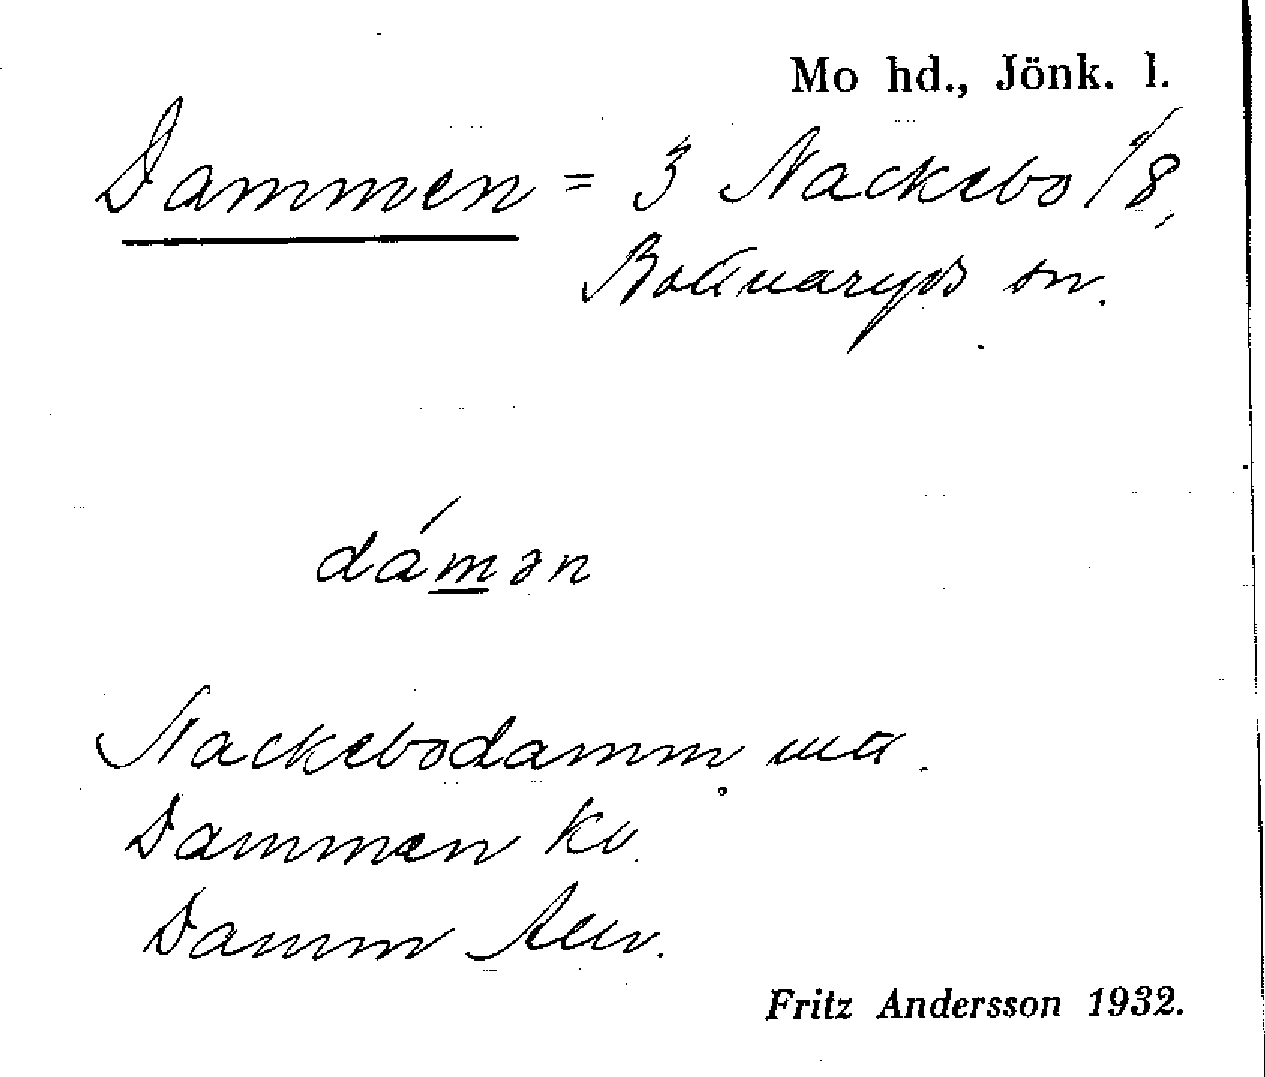 Mo hd., Jönk. l.
Dammen = 3 Nackebo 1/8,
Bottnaryds sn.
dámən
Nackebodamm
Dammen kv.
Damm
Fritz Andersson 1932.